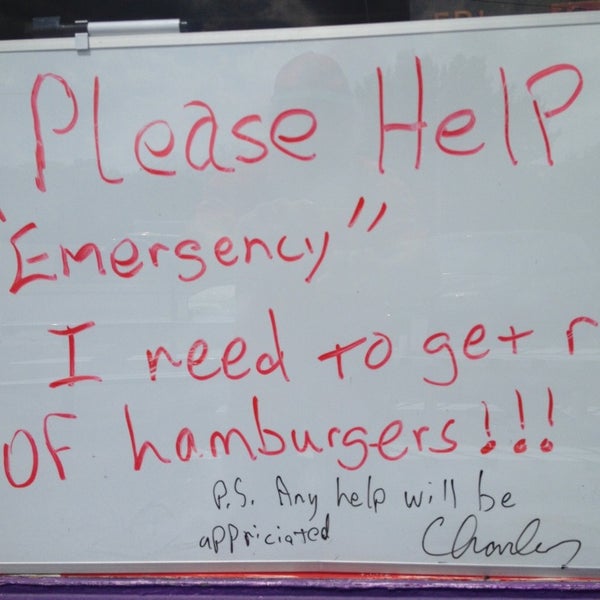 Please Help
"Emergency"
I need to get r
of hamburgers!!!
P.S. Any help will be
appriciated
Charles